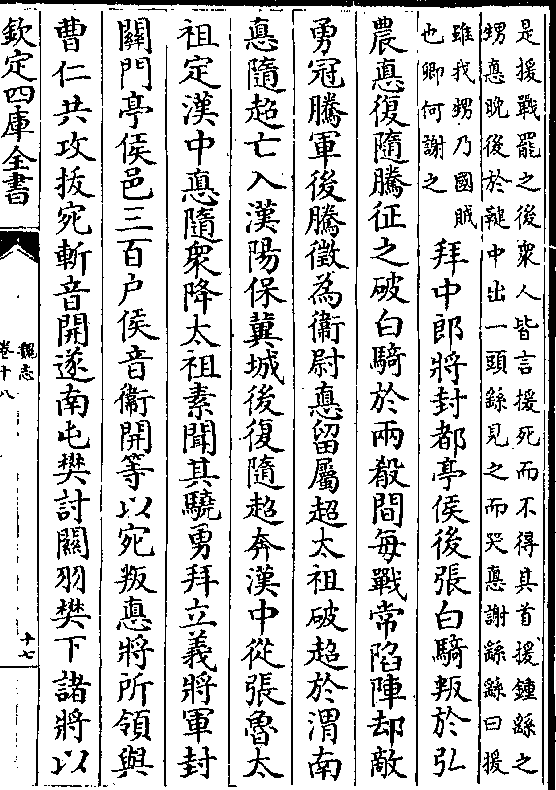 是援戰罷之後衆人皆言援死而不得其首援鍾繇之
甥悳晚後於鞬中出一頭繇見之而哭悳謝繇繇曰援
雖我甥乃國賊
也卿何謝之
拜中郎將封都亭侯後張白騎叛於弘
農悳復隨騰征之破白騎於兩殽間每戰常陷陣却敵
勇冠騰軍後騰徵為衞尉悳留屬超太祖破超於渭南
悳隨超亡入漢陽保冀城後復隨超奔漢中從張魯太
祖定漢中悳隨衆降太祖素聞其驍勇拜立義將軍封
關門亭侯邑三百户侯音衞開等以宛叛悳將所領與
曹仁共攻拔宛斬音開遂南屯樊討關羽樊下諸將以
欽定四庫全書
魏志
卷十八
十七